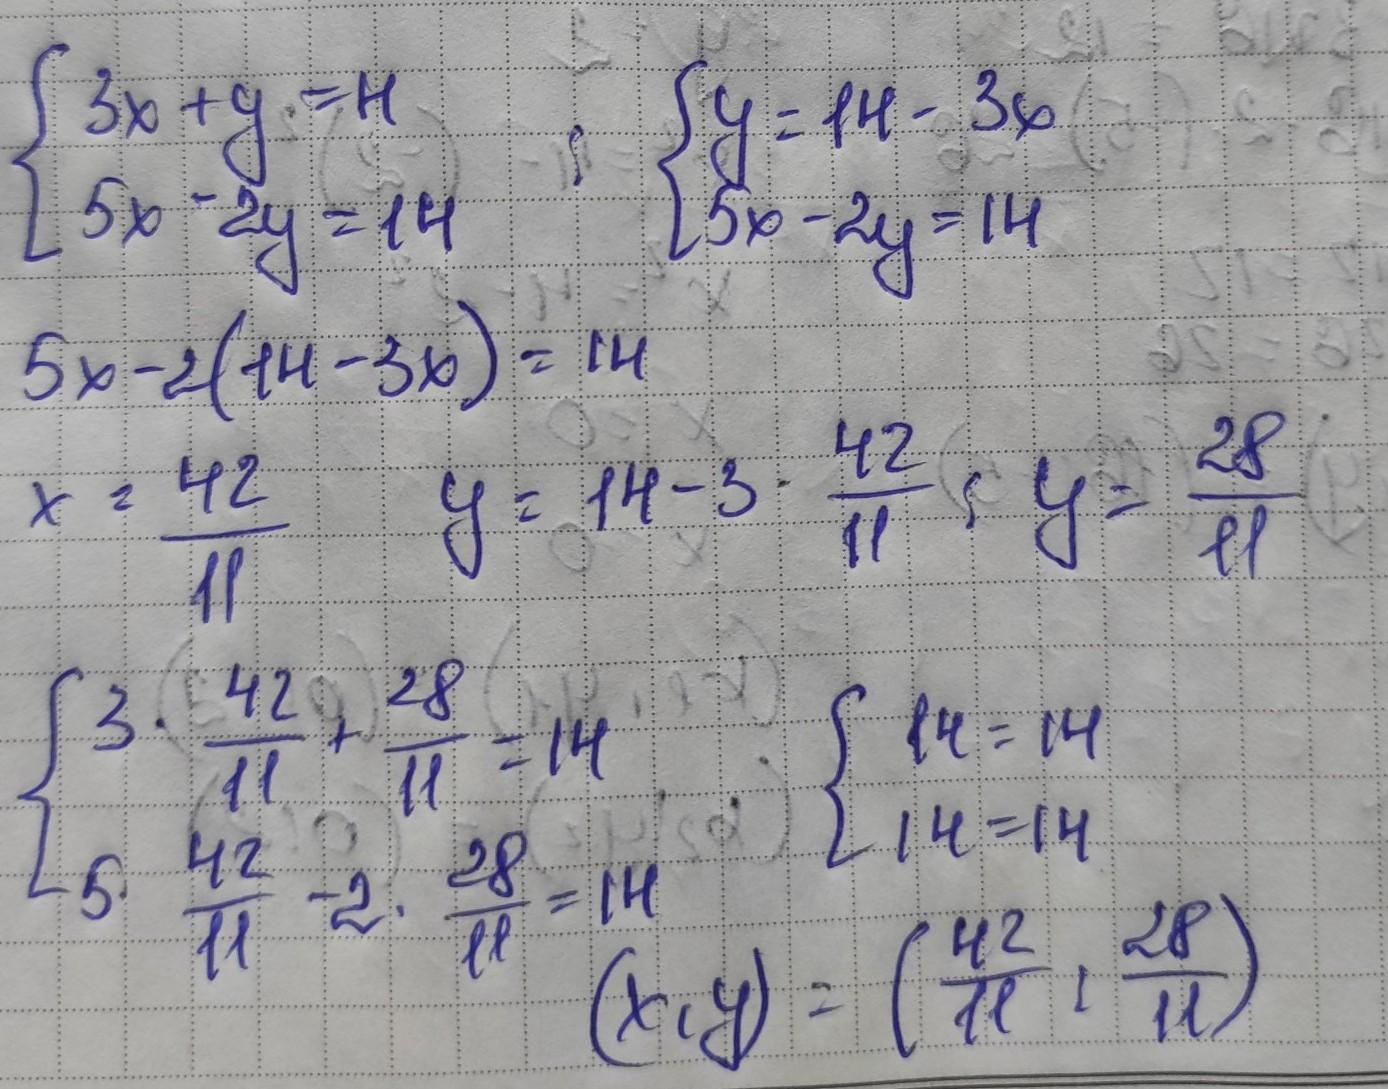 { 3x + y = 4 ; { y = 14 - 3x
5x - 2y = 14 5x - 2y = 14
5x - 2(14 - 3x) = 14
x = 42/11 y = 14 - 3 · 42/11 ; y = 28/11
{ 3 · 42/11 + 28/11 = 14 { 14 = 14
5 · 42/11 - 2 · 28/11 = 14 14 = 14
(x, y) = (42/11 ; 28/11)